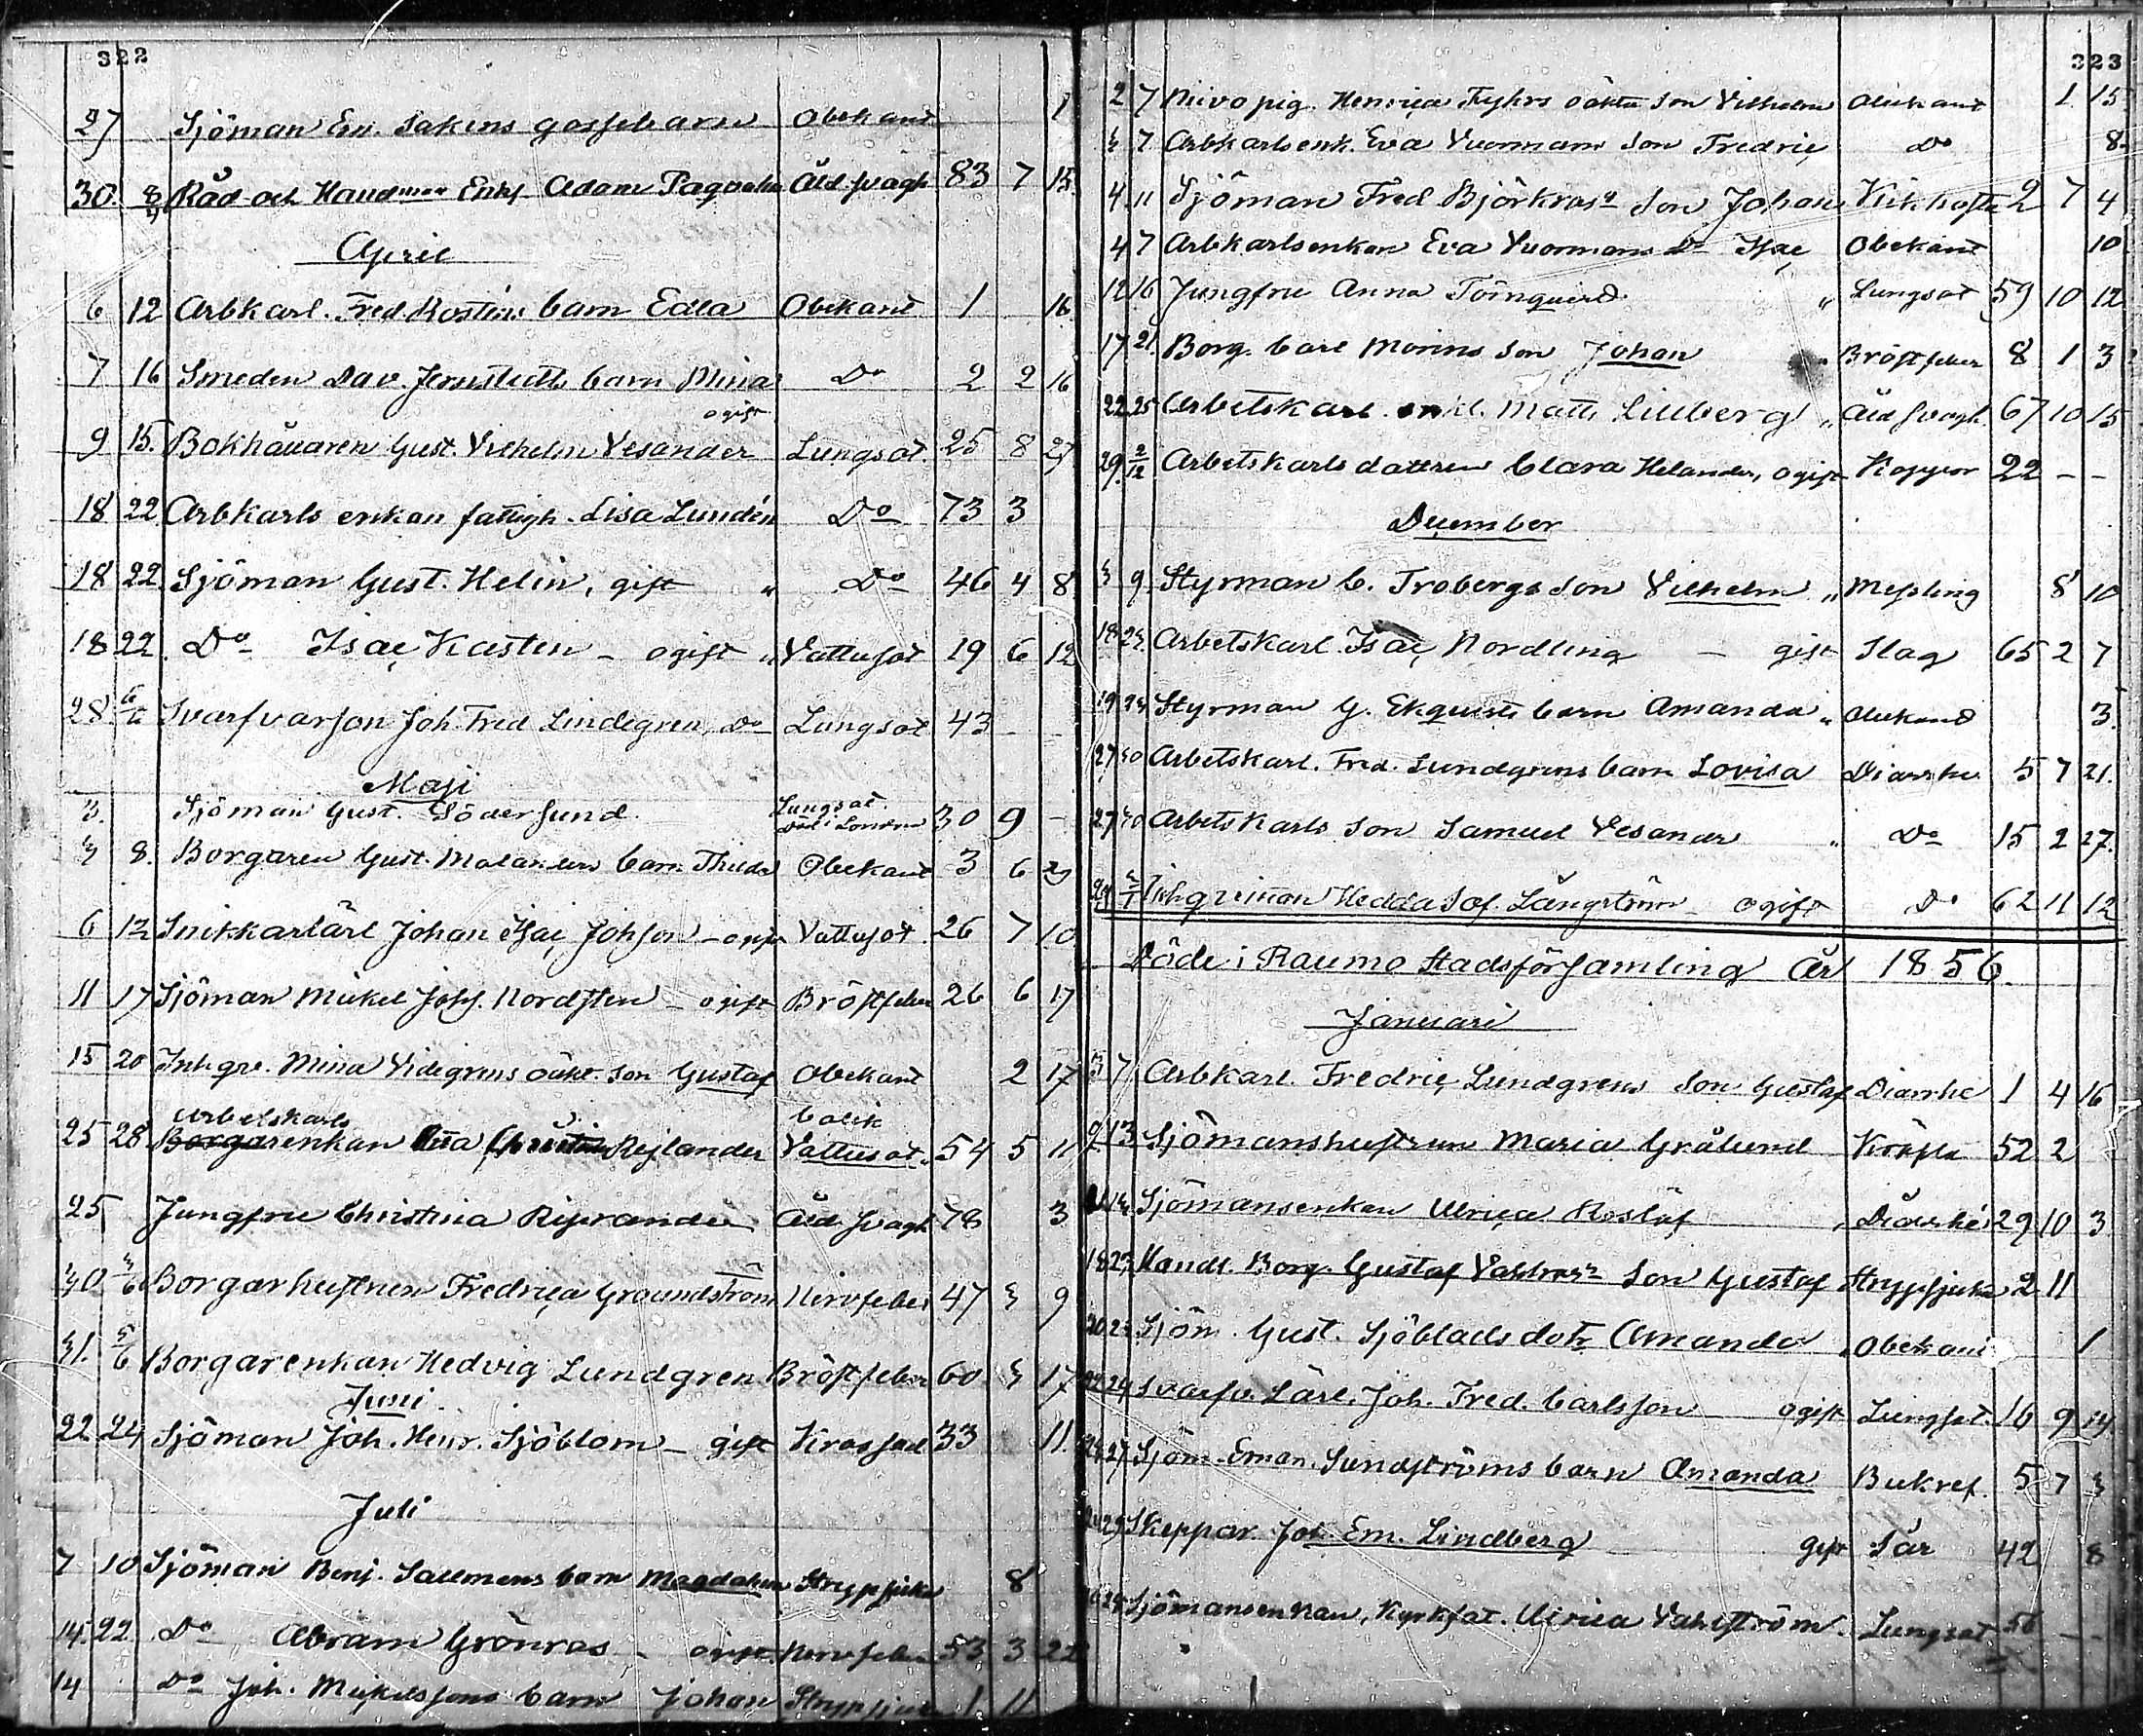 322
27 Sjöman Em. Sakens gossebarn Obekant 1
30. 8/4 Råd och Handmen Enkl. Adam Paqvalin Åld. svagh 83 7 15
April
6 12 Arbkarl. Fred. Rosténs barn Edla Obekant 1 16
7 16 Smeden Dav. Jernstedts barn Mina Do 2 2 16
ogift
9 15. Bokhållaren Gust. Vilhelm Vesander Lungsot. 25 8 27
18 22 Arbkarls enkan fattigh. Lisa Lundén Do 73 3
18 22 Sjöman Gust. Helin, gift " Do 46 4 8
18 22 Do Isac Kasten - ogift " Vattusot 19 6 12
28. 6/6 Svarfvarson Joh. Fred Lindegren, Do Lungsot 43 - -
Maji
3. Sjöman Gust. Söderlund Lungsot. Död i London 30 9 -
3 8. Borgaren Gust. Malanders barn Thilda Obekant 3 6 29
6 12 Snikkarlärl Johan Isac Johsson - ogift Vattusot 26 7 10
11 17 Sjöman Mickel Josf. Nordsten - ogift Bröstfeber 26 6 17
15 20 Inhqv. Mina Videgrens oäkt. son Gustaf Obekant 2 17
Arbetskarls Colik
25 28 Borgarenkan Christina Rejlander Vattusot " 54 5 11
25 Jungfru Christina Riperander Åld. svagh 78 3
30 3/6 Borgarhustrun Fredrica Graundström Nervfeber 47 3 9
31. 5/6 Borgarenkan Hedvig Lundgren Bröstfeber 60 3 17
Juni
22 24 Sjöman Joh. Henr. Sjöblom - gift Krossad 33 11.
Juli
7 10 Sjöman Benj. Sallmens barn Magdalena Strypsjuka 8
14. 22 Do Abram Grönroos - Nervfeber 53 3 22
14 Do Joh. Mickelssons barn Johan Strypsjuk 1 11
323
2 7 pig. Henrica Fyhrs oäkta son Vilhelm Obekant 1 15
3 7 Arbkarlsenk. Eva Vuormans son Fredric Do 8.
4. 11 Sjöman Fred Björkroos son Johan Kikhosta 2 7 4
4 7 Arbkarlsenkan Eva Vuormans Do Isac Obekant 10
12 16 Jungfru Anna Törnquist " Lungsot 59 10 12
17 21. Borg. Carl Morins son Johan " Bröstfeber 8 1 3
22 25 Arbetskarl. enkl. Matts Lillberg " Åld svagh. 67 10 15
29. 2/12 Arbetskarls dottren Clara Helander, ogift Koppor 22 - -
December
3 9 Styrman C. Frobergs son Vilhelm " Messling 8 10
18 23 Arbetskarl. Isac Nordling - gift Slag 65 2 7
19 23 Styrman G. Ekquists barn Amanda " Obekant 3.
27 30 Arbetskarl. Fred. Lundgrens barn Lovisa Diarrhe 5 7 21.
27 30 Arbetskarls son Samuel Vesander " Do 15 2 27.
29 2/1 Inhqvinnan Hedda Sof. Långström - ogift Do 62 11 12
Döde i Raumo Stadsförsamling År 1856.
Januari
3 7 Arbkarl. Fredric Lundgrens son Gustaf Diarrhe 1 4 16
9 13 Sjömanshustrun Maria Grålund Kräfta 52 2
Sjömansenkan Ulrica Roslöf " Diarrhé 29 10 3
18 23 Handl. Borg. Gustaf Vahlroos son Gustaf Strypsjuka 2 11
20 23 Sjöm. Gust. Sjöblads dotr Amanda " Obekant 1
24 Svarfv. Lärl. Joh. Fred. Carlsson ogift Lungsot. 16 9 14
27 Sjöm. Eman. Sundströms barn Amanda Bukref. 5 7 3
29 Skeppar. Joh. Em. Lindberg gift Sår 42 8
Sjömansenkan, Kyrkfat. Ulrica Vahlström. Lungsot 56 - -